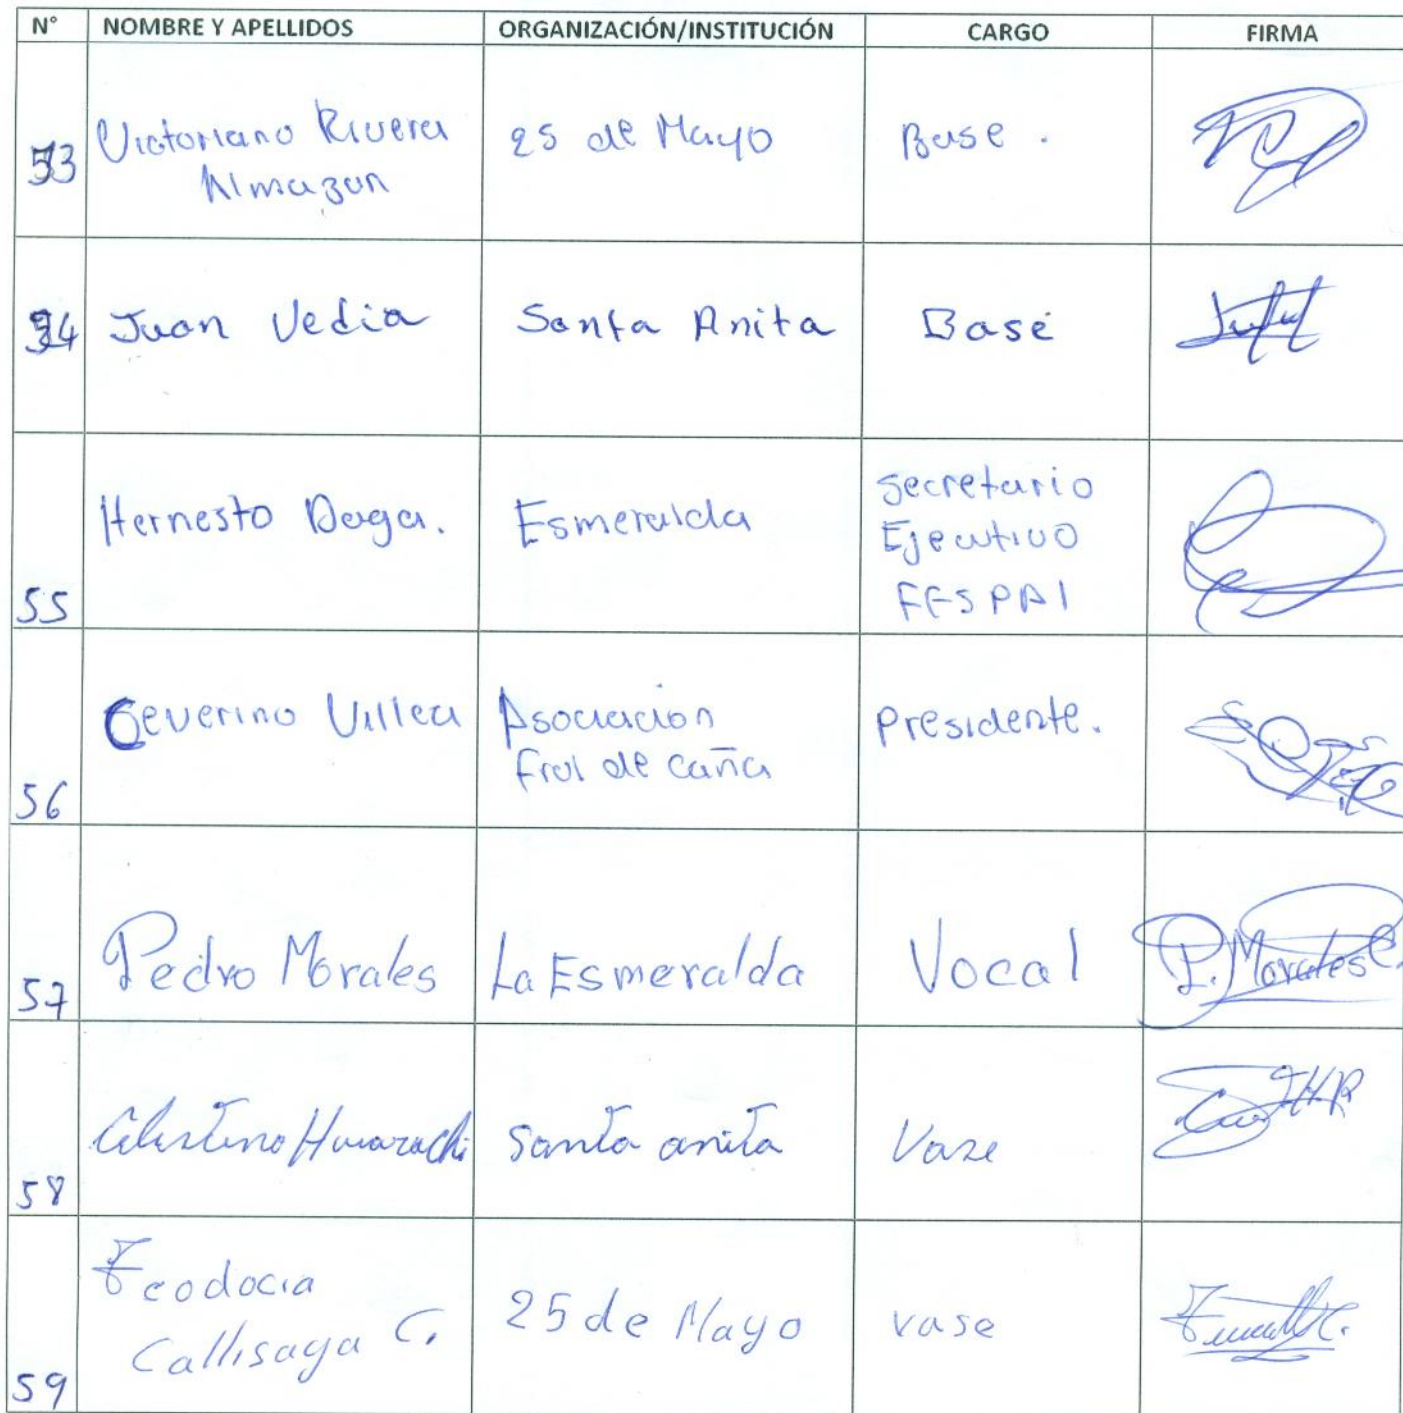 N° NOMBRE Y APELLIDOS ORGANIZACIÓN/INSTITUCIÓN CARGO FIRMA
53 Victoriano Rivera 25 de Mayo Base.
Almazan
54 Juan Vedia Santa Anita Base
Hernesto Daga. Esmeralda Secretario
Ejecutivo
55 FFSPAI
Ceverino Villea Asociacion Presidente.
Frol de caña
56
57 Pedro Morales La Esmeralda Vocal P. Morales C.
Celestino Huarachi Santa anita Vaze
58
Teodocia
Callisaya C. 25 de Mayo vase
59